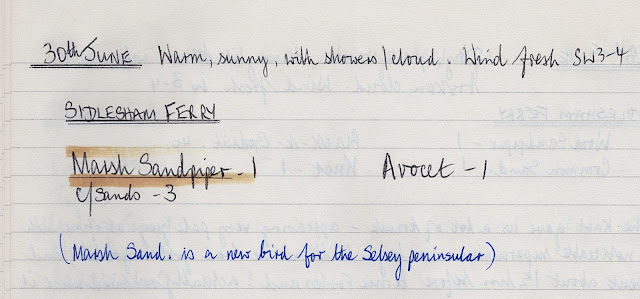 30th JUNE Warm, sunny, with showers/cloud. Wind fresh SW3-4
SIDLESHAM FERRY
Marsh Sandpiper - 1 Avocet - 1
c/sands - 3
(Marsh Sand. is a new bird for the Selsey peninsular)